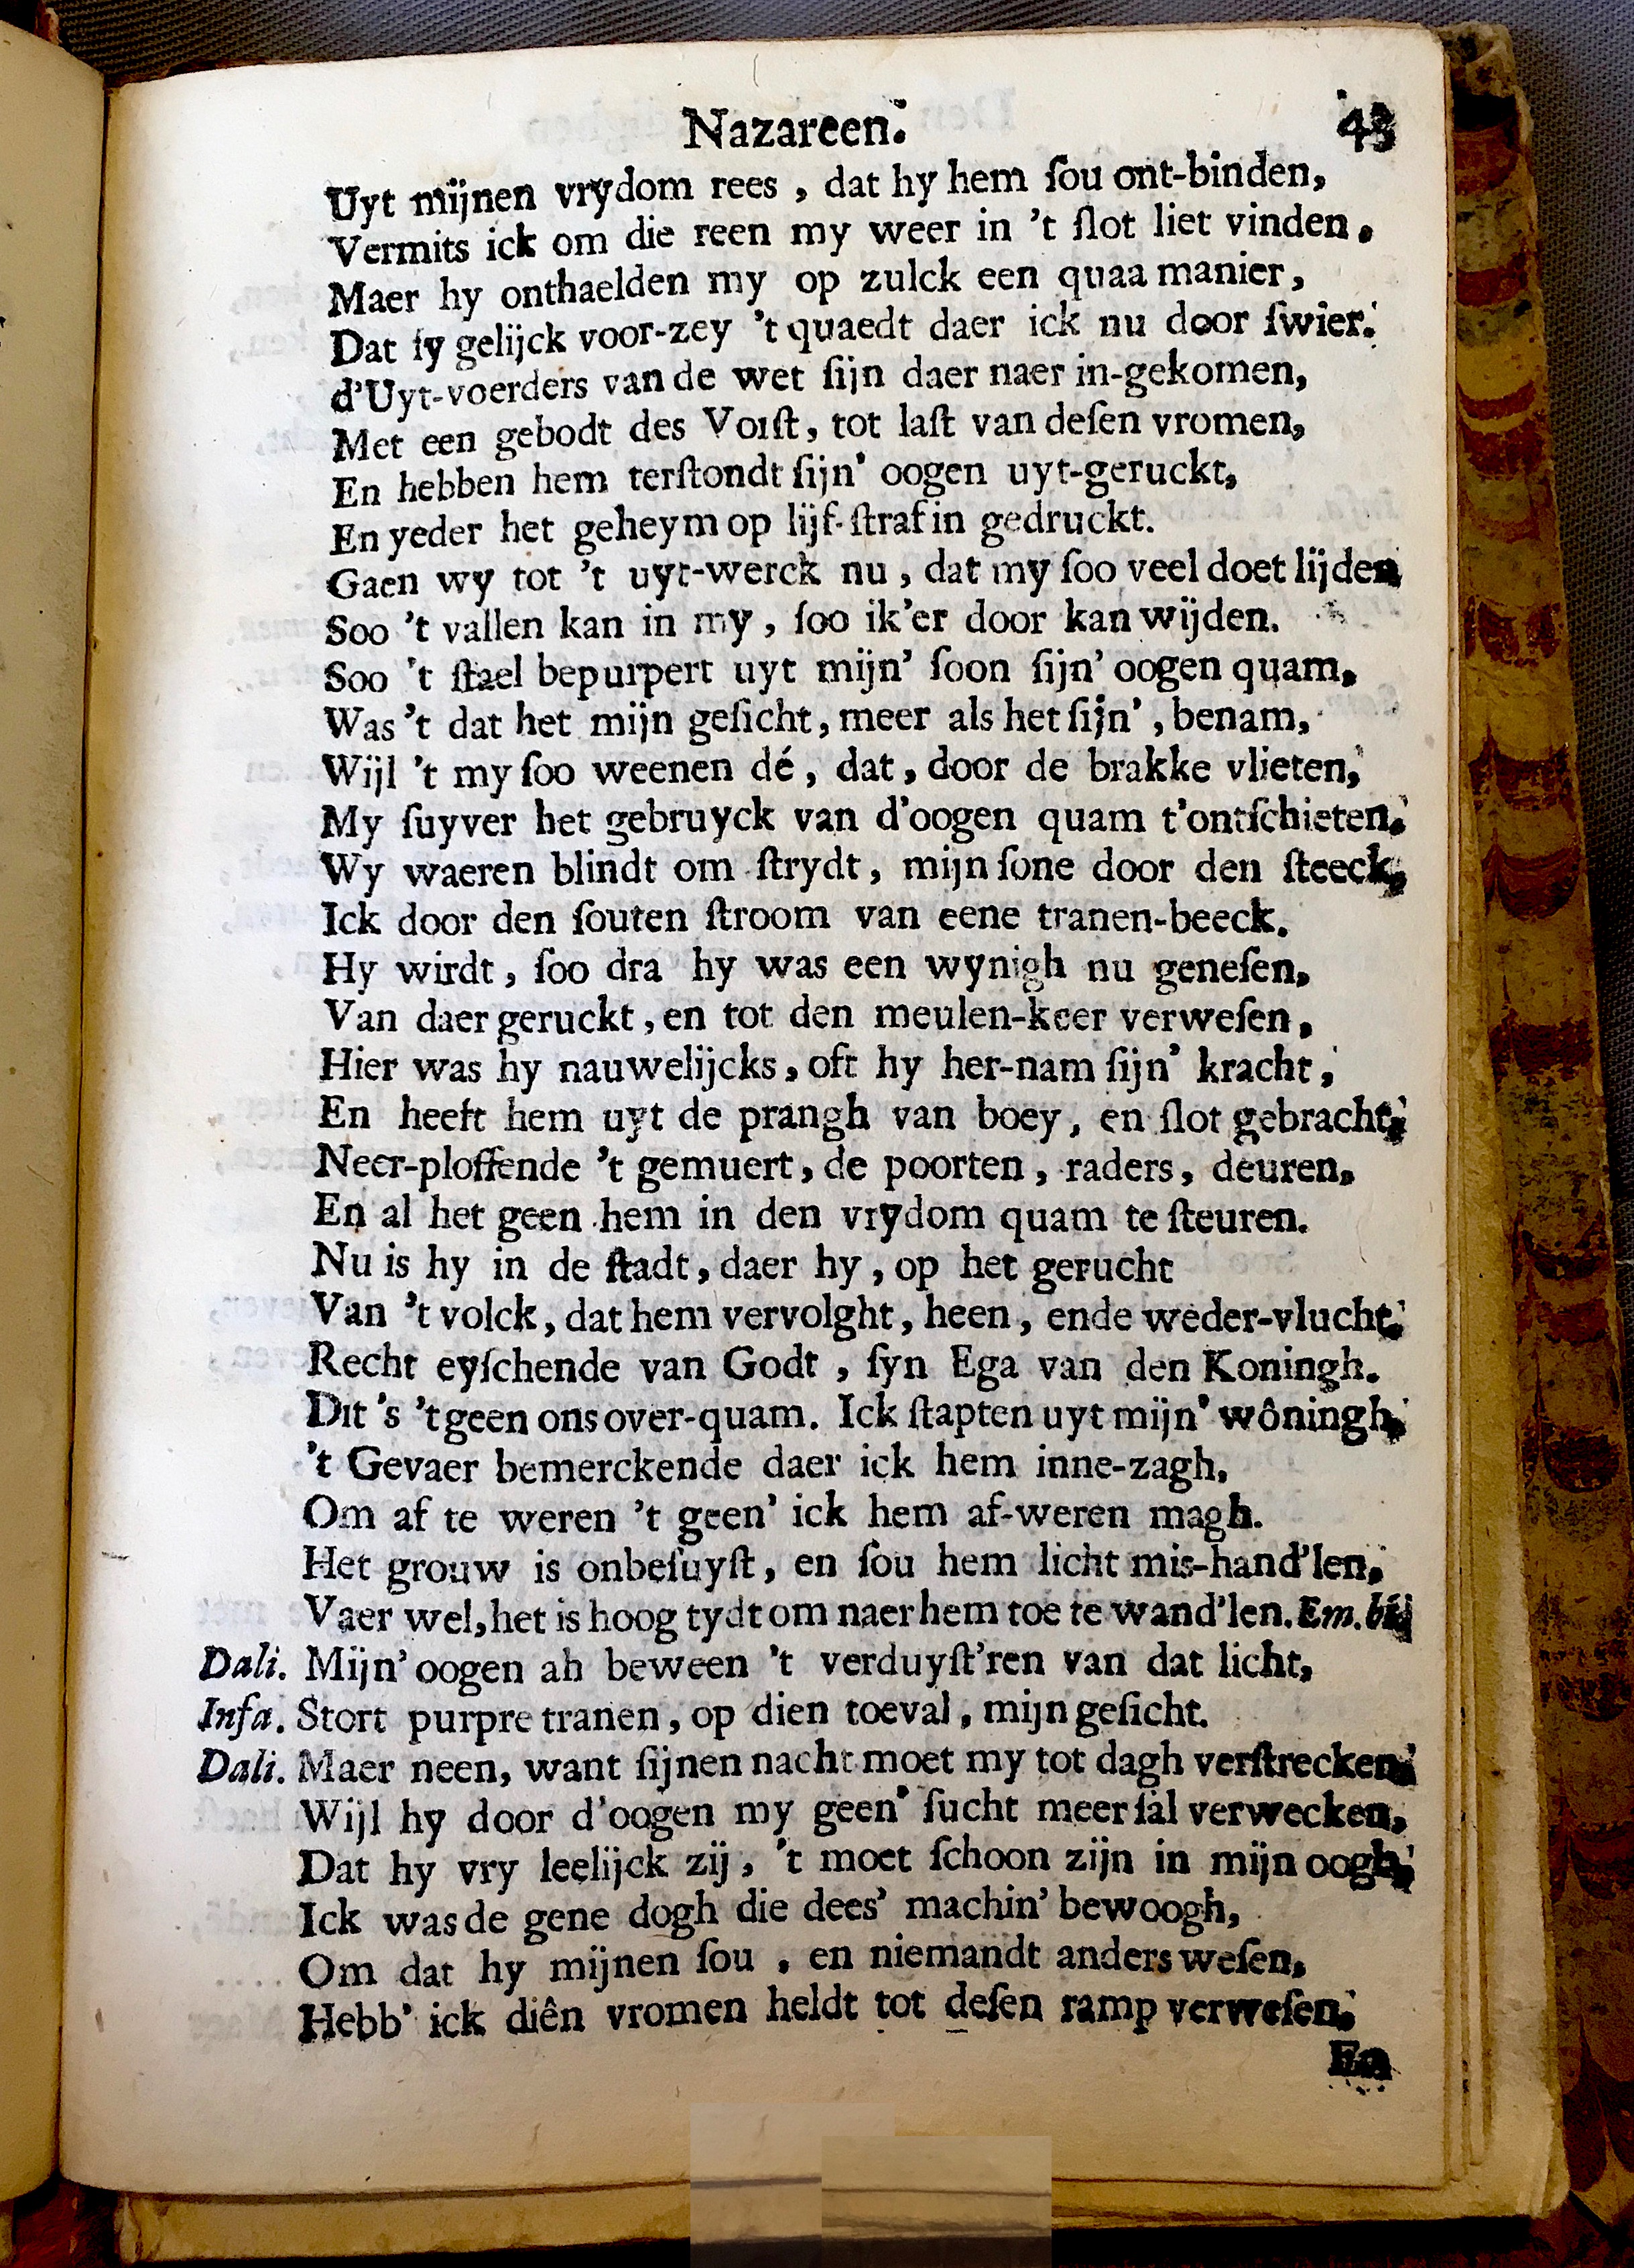 Nazareen. 43
Uyt mijnen vrydom rees , dat hy hem ſou ont-binden,
Vermits ick om die reen my weer in 't ſlot liet vinden.
Maer hy onthaelden my op zulck een quaa manier,
Dat ſy gelijck voor-zey 't quaedt daer ick nu door ſwier.
d'Uyt-voerders van de wet ſijn daer naer in-gekomen,
Met een gebodt des Vorſt, tot laſt van deſen vromen,
En hebben hem terſtondt ſijn' oogen uyt-geruckt,
En yeder het geheym op lijf-ſtraf in gedruckt.
Gaen wy tot 't uyt-werck nu , dat my ſoo veel doet lijden
Soo 't vallen kan in my , ſoo ik'er door kan wijden.
Soo 't ſtael bepurpert uyt mijn' ſoon ſijn' oogen quam,
Was 't dat het mijn geſicht, meer als het ſijn' , benam,
Wijl 't my ſoo weenen dé, dat, door de brakke vlieten,
My ſuyver het gebruyck van d'oogen quam t'ontſchieten.
Wy waeren blindt om ſtrydt, mijn ſone door den ſteeck,
Ick door den ſouten ſtroom van eene tranen-beeck.
Hy wirdt, ſoo dra hy was een wynigh nu geneſen,
Van daer geruckt, en tot den meulen-keer verweſen,
Hier was hy nauwelijcks, oft hy her-nam ſijn' kracht,
En heeft hem uyt de prangh van boey, en ſlot gebracht,
Neer-ploffende 't gemuert, de poorten, raders, deuren,
En al het geen hem in den vrydom quam te ſteuren.
Nu is hy in de ſtadt, daer hy, op het gerucht
Van 't volck, dat hem vervolght, heen, ende weder-vlucht.
Recht eyſchende van Godt , ſyn Ega van den Koningh.
Dit 's 't geen ons over-quam. Ick ſtapten uyt mijn' wôningh,
't Gevaer bemerckende daer ick hem inne-zagh,
Om af te weren 't geen' ick hem af-weren magh.
Het grouw is onbeſuyſt, en ſou hem licht mis-hand'len,
Vaer wel, het is hoog tydt om naer hem toe te wand'len. Em. bij
Dali. Mijn' oogen ah beween 't verduyſt'ren van dat licht,
Infa. Stort purpre tranen, op dien toeval, mijn geſicht.
Dali. Maer neen, want ſijnen nacht moet my tot dagh verſtrecken
Wijl hy door d'oogen my geen' ſucht meer ſal verwecken,
Dat hy vry leelijck zij, 't moet ſchoon zijn in mijn oogh,
Ick was de gene dogh die dees' machin' bewoogh,
Om dat hy mijnen ſou , en niemandt anders weſen,
Hebb' ick diên vromen heldt tot deſen ramp verweſen.
En